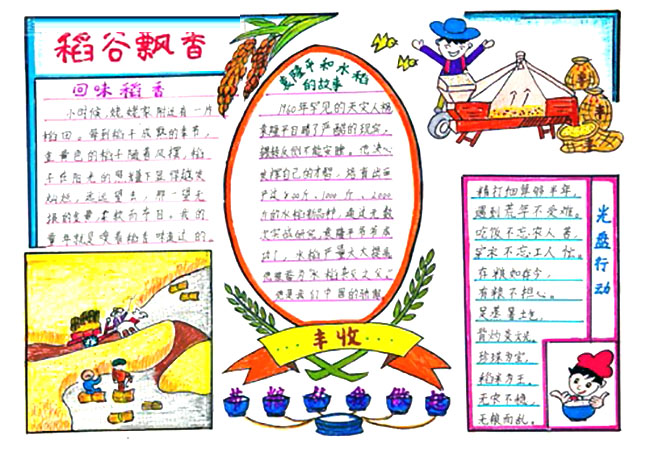 稻谷飘香
回味稻香
小时候，姥姥家附近有一片
稻田。每到稻子成熟的季节，
金黄色的稻子随着风摆，稻
子在阳光的照耀下显得
灿烂，远远望去，那一望无
根的金黄
童年就是嗅着稻香时走过的。
袁隆平和水稻
的故事
1960年罕见的天灾人祸
袁隆平目睹了严酷的现实，
辗转反侧不能安睡。他决心
发挥自己的才智，培育出亩
产过800斤、1000斤、2000
斤的水稻新品种，通过无数
次实战研究，袁隆平
功了，水稻产量大大提高
水稻
们中国的骄傲
丰收
节粮从我做起
光盘行动
精打细算够半年，
遇到荒年不受难。
吃饭不忘农人苦，
穿衣不忘工人忙。
在粮如存今，
有粮不担心。
足蒸暑土气，
背灼炎天光，
珍珠为宝，
稻米为王。
无农不稳，
无粮而乱。